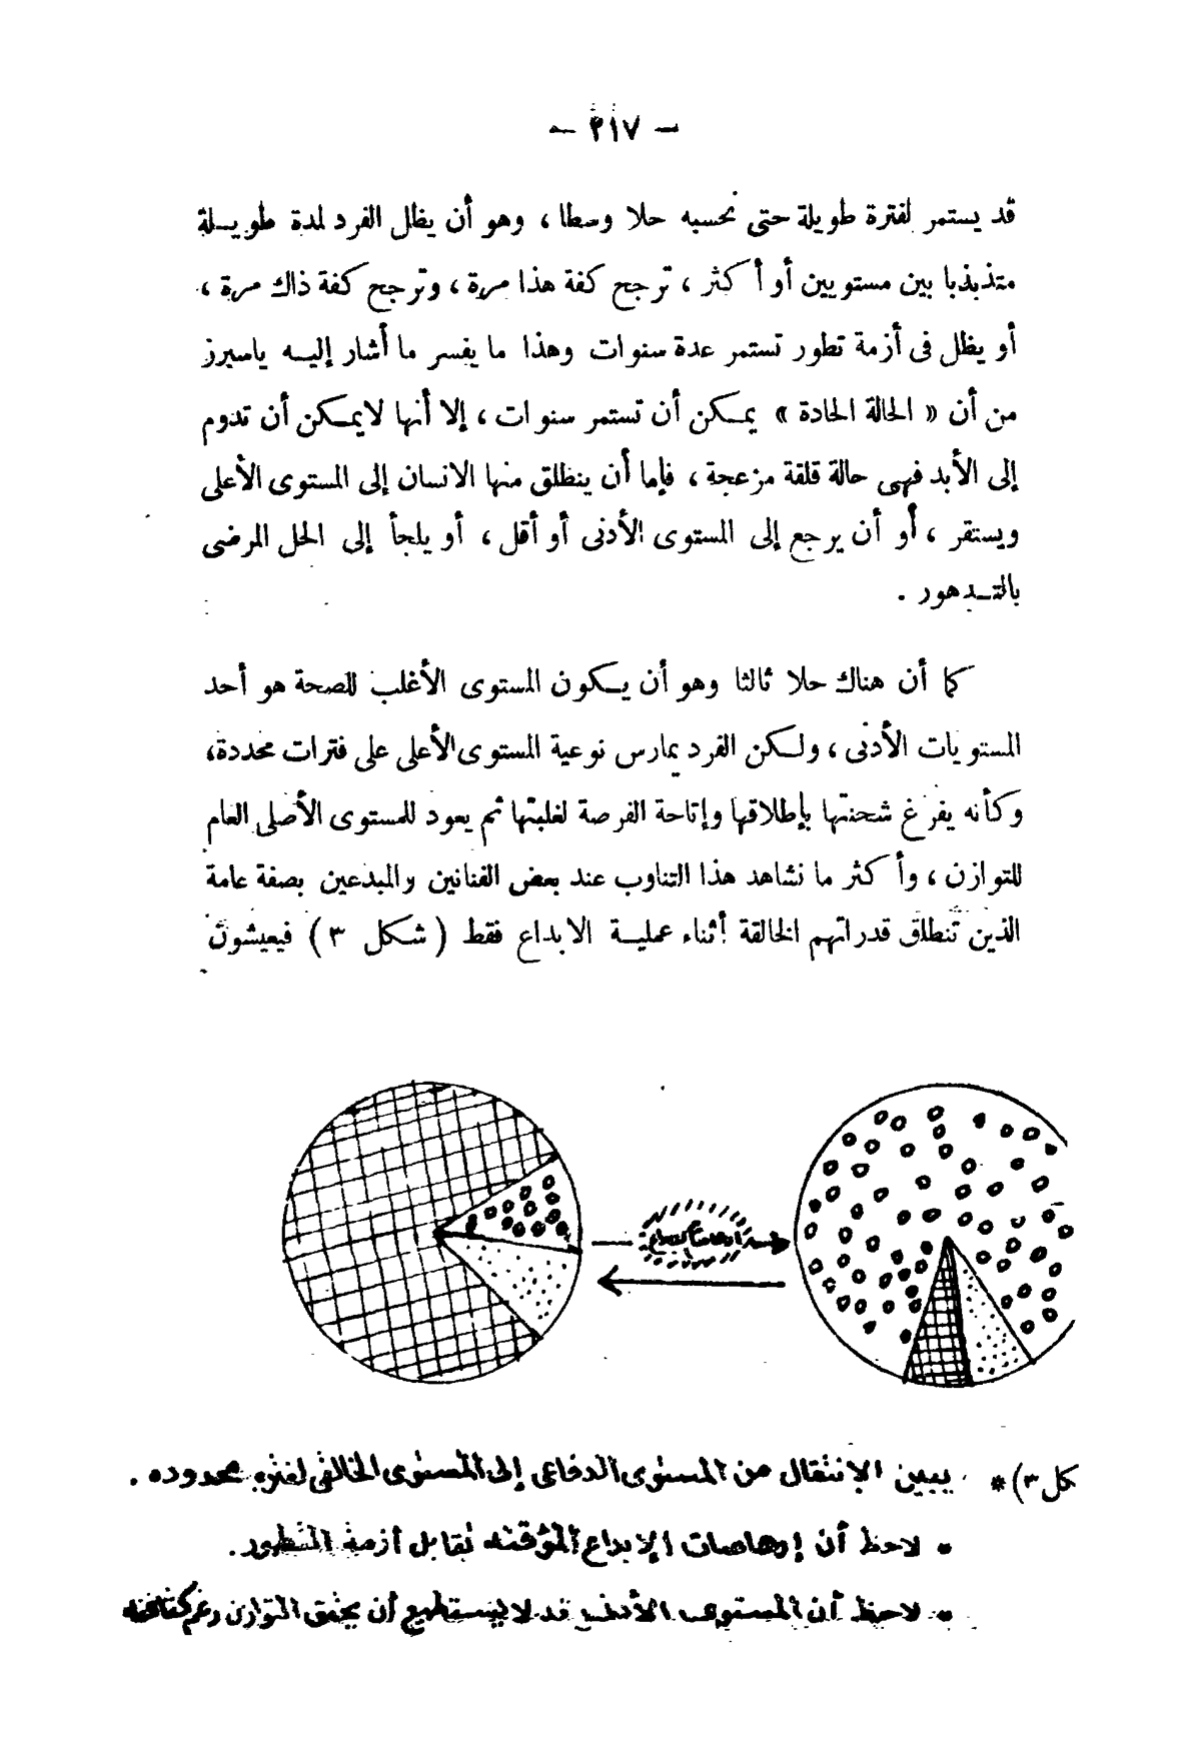 — ٢١٧ —
قد يستمر لفترة طويلة حتى نحسبه حلا وسطا ، وهو أن يظل الفرد لمدة طويلة
متذبذبا بين مستويين أو أكثر ، ترجح كفة هذا مرة ، وترجح كفة ذاك مرة ،
أو يظل فى أزمة تطور تستمر عدة سنوات وهذا ما يفسر ما أشار إليه ياسبرز
من أن « الحالة الحادة » يمكن أن تستمر سنوات ، إلا أنها لايمكن أن تدوم
إلى الأبد فهى حالة قلقة مزعجة ، فإما أن ينطلق منها الانسان إلى المستوى الأعلى
ويستقر ، أو أن يرجع إلى المستوى الأدنى أو أقل ، أو يلجأ إلى الحل المرضى
بالتدهور .
كما أن هناك حلا ثالثا وهو أن يكون المستوى الأغلب للصحة هو أحد
المستويات الأدنى ، ولكن الفرد يمارس نوعية المستوى الأعلى على فترات محددة،
وكأنه يفرغ شحنتها بإطلاقها وإتاحة الفرصة لغلبتها ثم يعود للمستوى الأصلى العام
للتوازن ، وأكثر ما نشاهد هذا التناوب عند بعض الفنانين والمبدعين بصفة عامة
الذين تنطلق قدراتهم الخالقة أثناء عملية الابداع فقط ( شكل ٣ ) فيعيشون
إرهاصات الإبداع
كل ٣) * يبين الإنتقال من المستوى الدفاعى إلى المستوى الخالقى لفتره محدوده .
• لاحظ أن إرهاصات الإبداع المؤقته تقابل أزمة التطور.
• لاحظ أن المستوى الأدنى قد لا يستطيع أن يحقق التوازن رغم كفاءته